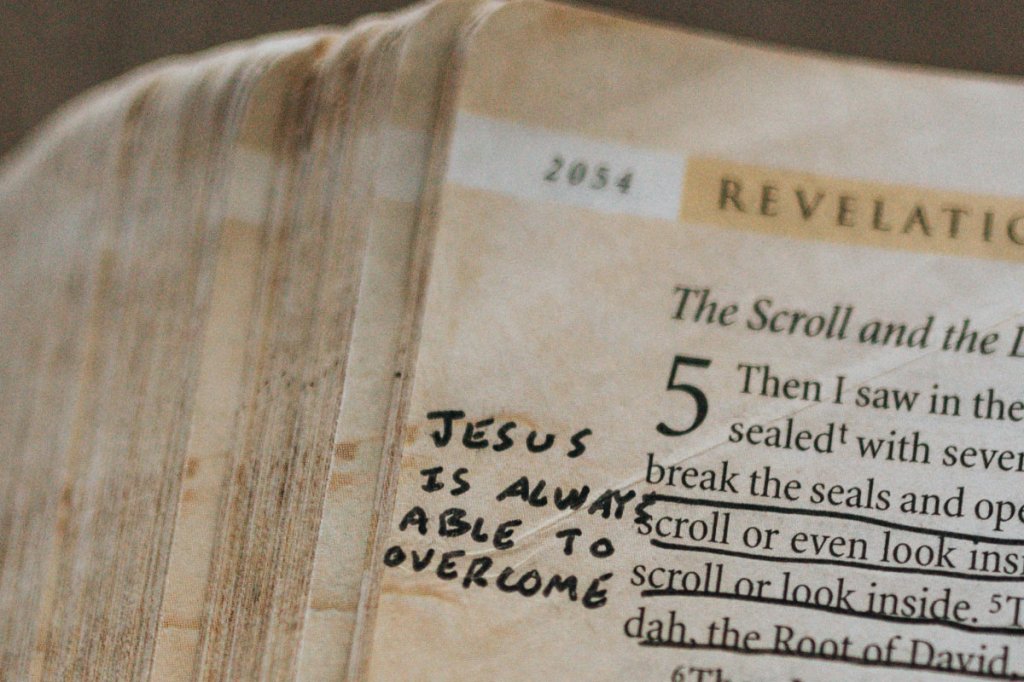 2054 REVELATIO
The Scroll and the L
5 Then I saw in the
sealedᵗ with seven
break the seals and ope
scroll or even look insi
scroll or look inside. ⁵T
dah, the Root of David,
JESUS
IS ALWAYS
ABLE TO
OVERCOME